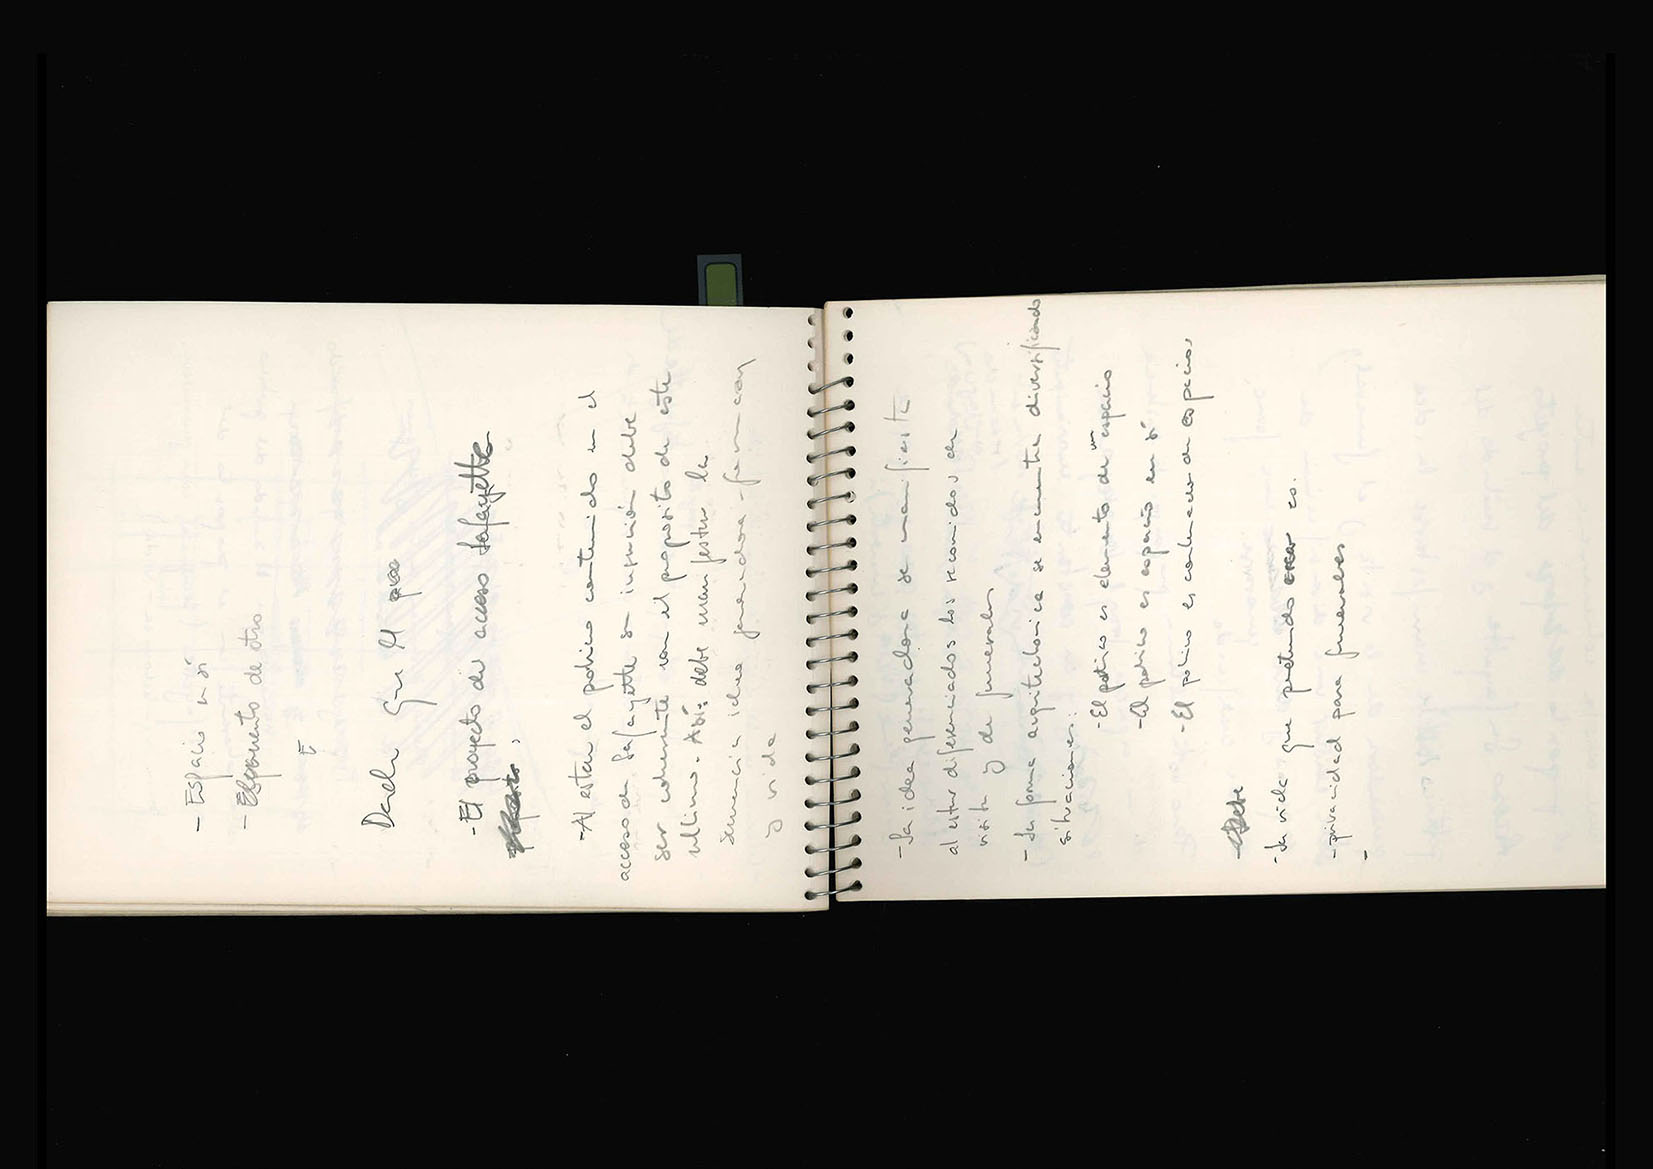 - Espacio en sí
- Elemento de otro
E
Dado que el
- El proyecto de acceso Lafayette
- Al estar el pórtico contenido en el
acceso de Lafayette su intención debe
ser coherente con el proposito de este
ultimo. Así: debe manifestar la
secuencia idea generadora - forma
y vida
- La idea generadora se manifiesta
al estar diferenciados los recorridos de
visita y de funerales
- La forma arquitectonica se encuentra diversificando
situaciones:
- El portico es elemento de un espacio
- El portico es espacio en sí
- El portico es contenedor de espacios
- Debe
- La vida que pretendo crear es.
- privacidad para funerales
-